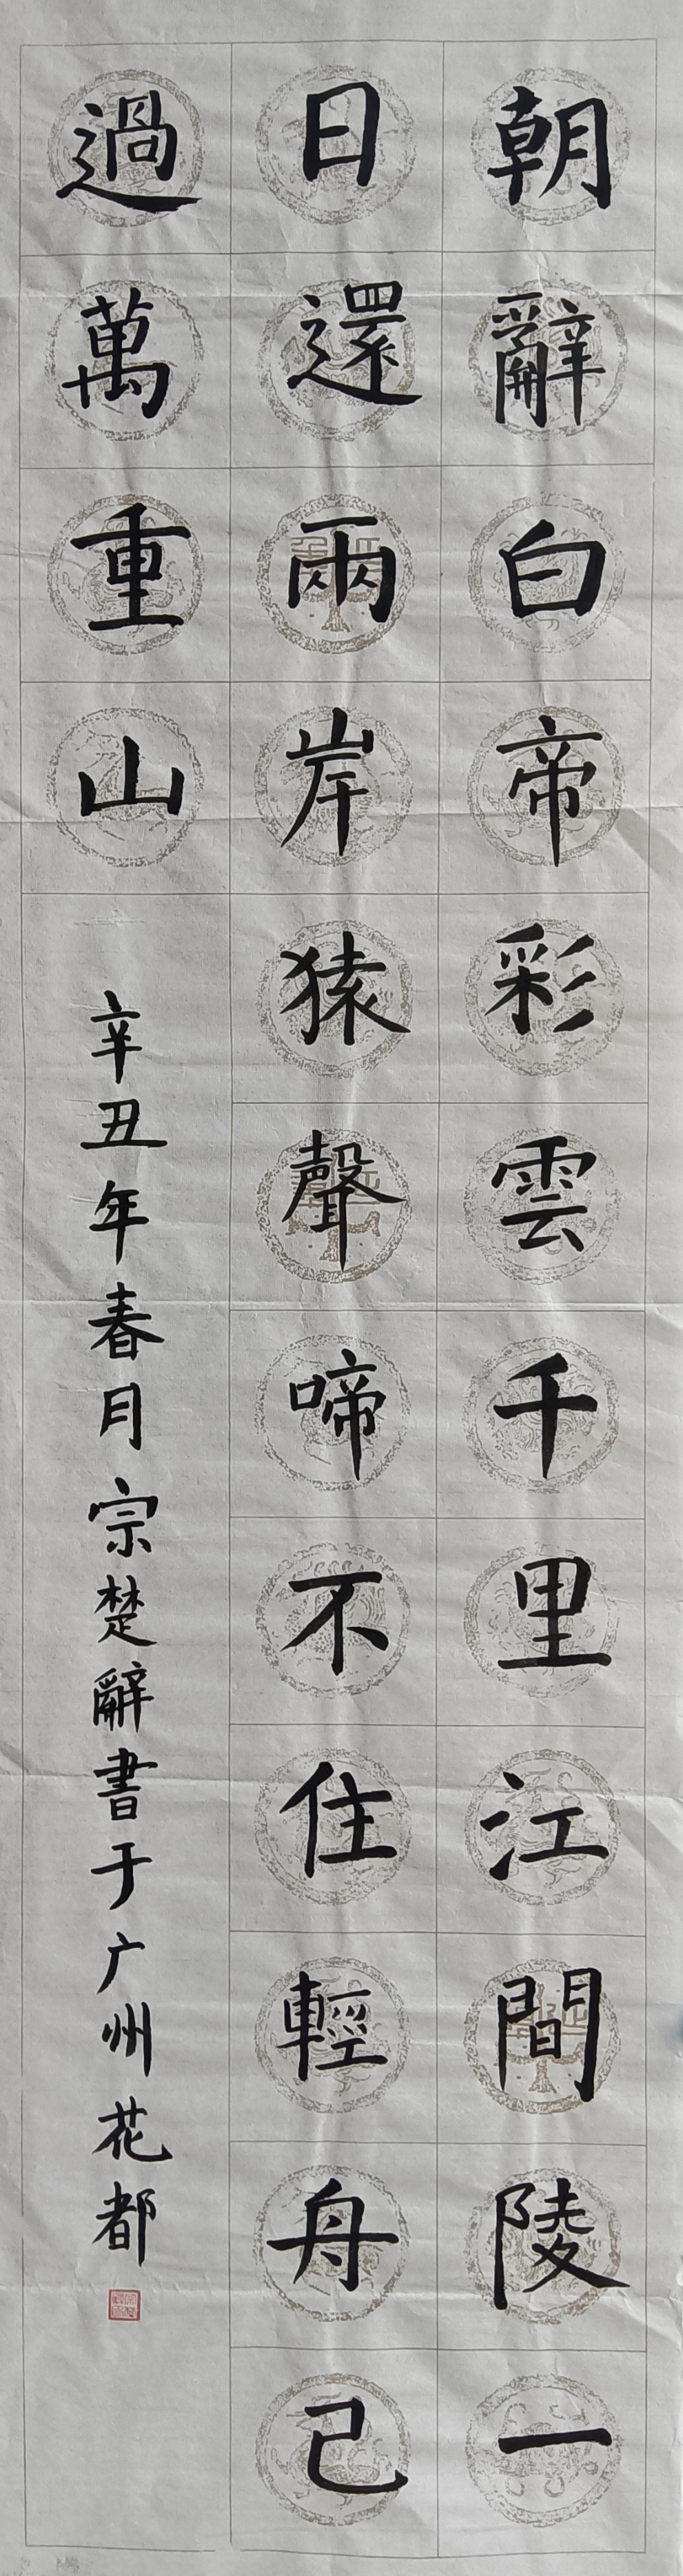 朝辭白帝彩雲千里江間陵一
日還兩岸猿聲啼不住輕舟已
過萬重山
辛丑年春月宗楚辭書于广州花都